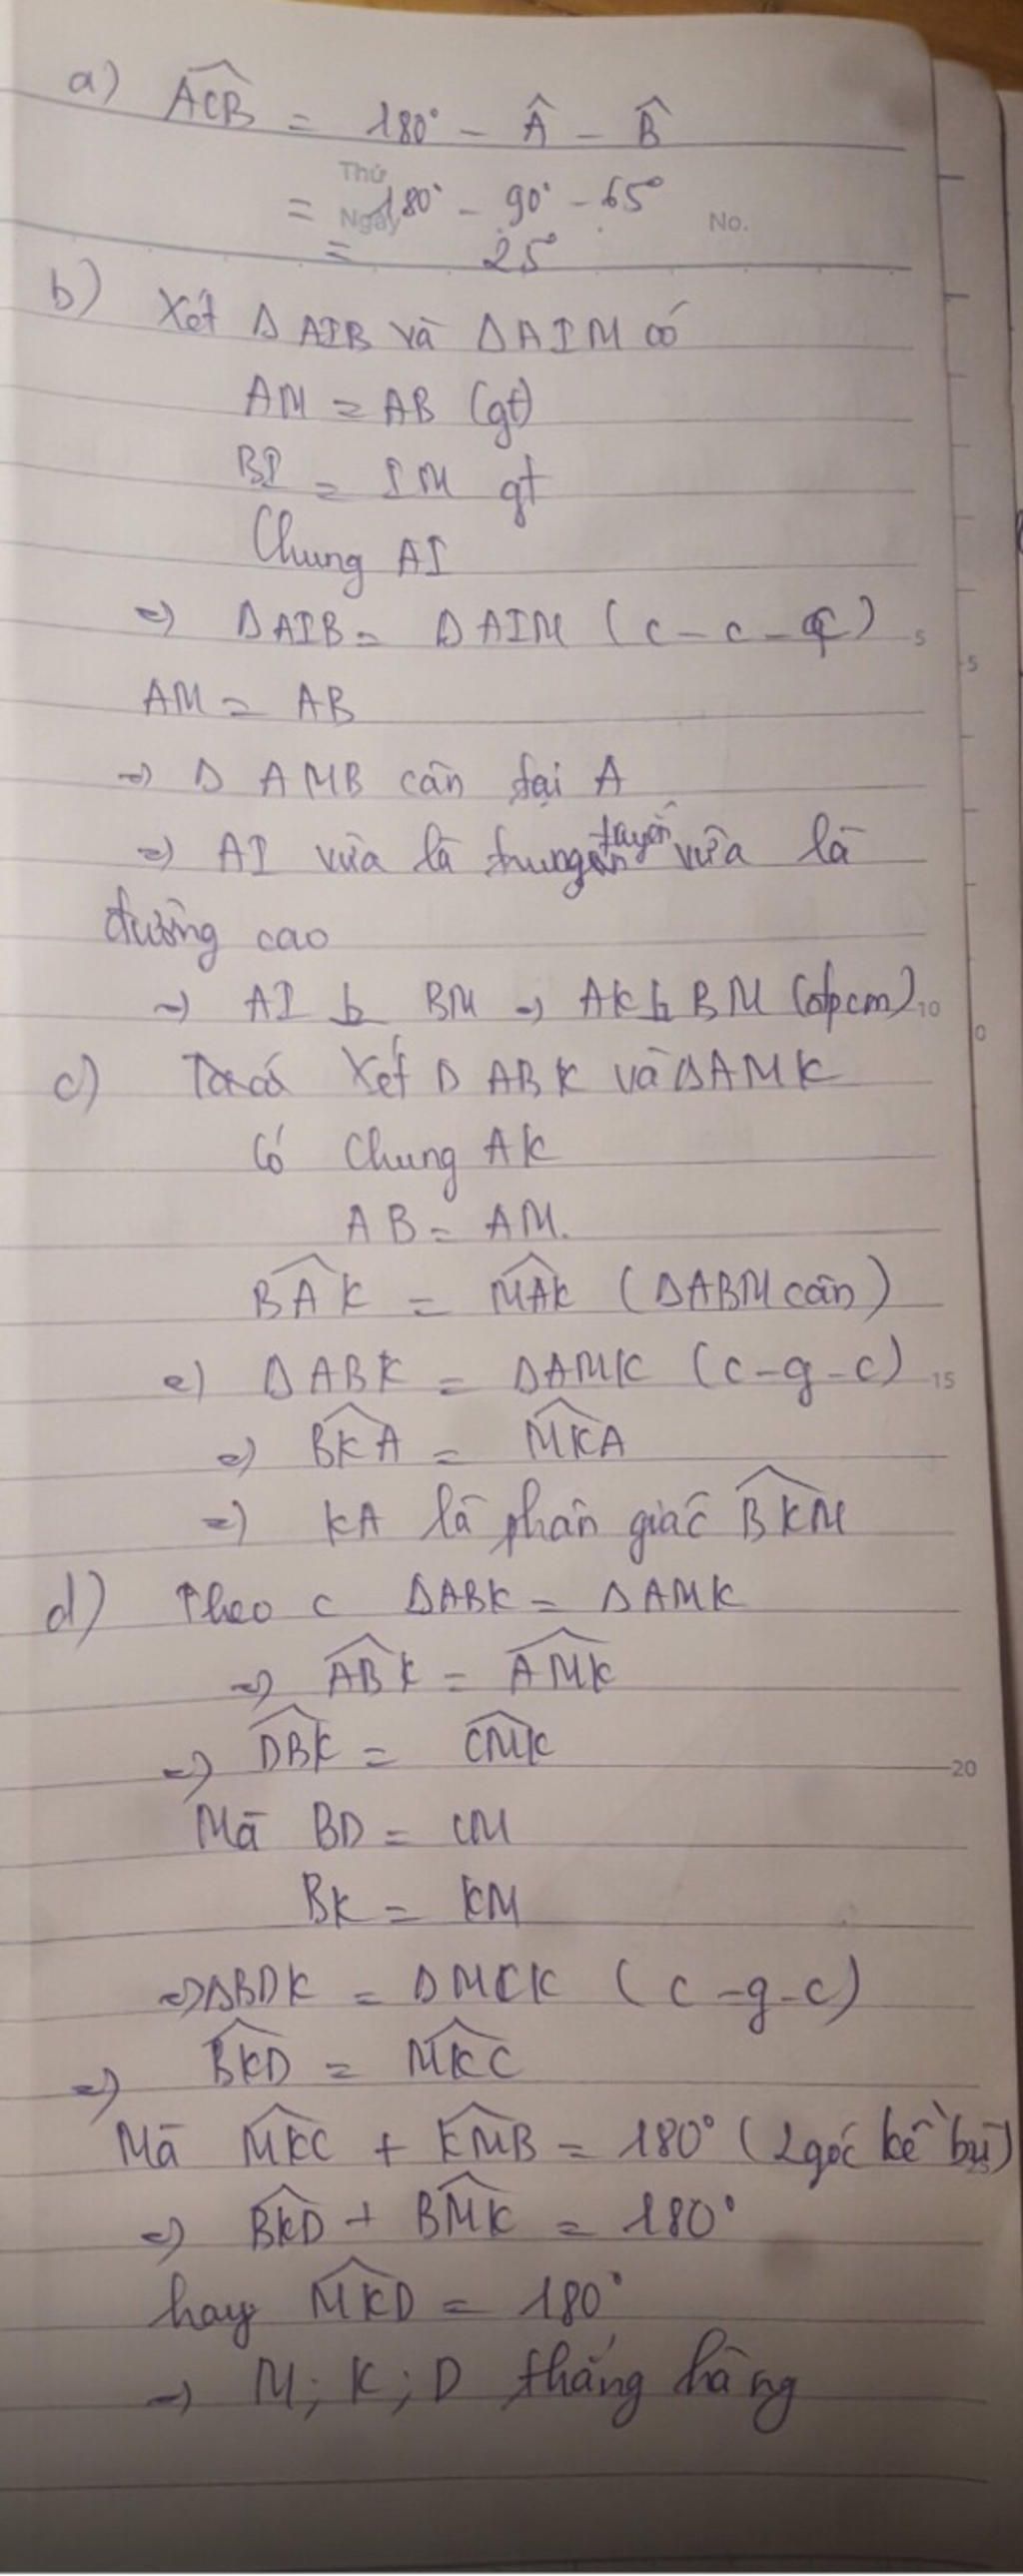 a) ACB = 180° - Â - B̂
Thứ
Ngày
No.
= 180° - 90° - 65°
= 25°
b) Xét Δ AIB và ΔAIM có
AM = AB (gt)
BI = IM gt
Chung AI
=> ΔAIB = ΔAIM (c - c - c)
5
5
AM = AB
=> Δ AMB cân tại A
=> AI vừa là trung tuyến vừa là
đường cao
=> AI ⊥ BM => AK ⊥ BM (đpcm)
10
0
c) Ta có Xét Δ ABK và ΔAMK
Có Chung AK
AB = AM.
BAK = MAK (ΔABM cân)
=> ΔABK = ΔAMK (c-g-c)
15
=> BKA = MKA
=> KA là phân giác BKM
d) Theo c ΔABK = ΔAMK
=> ABK = AMK
=> DBK = CMK
20
Mà BD = CM
BK = KM
=> ΔBDK = ΔMCK (c-g-c)
=> BKD = MKC
Mà MKC + KMB = 180° (2 góc kề bù)
=> BKD + BMK = 180°
hay MKD = 180°
=> M; K; D thẳng hàng